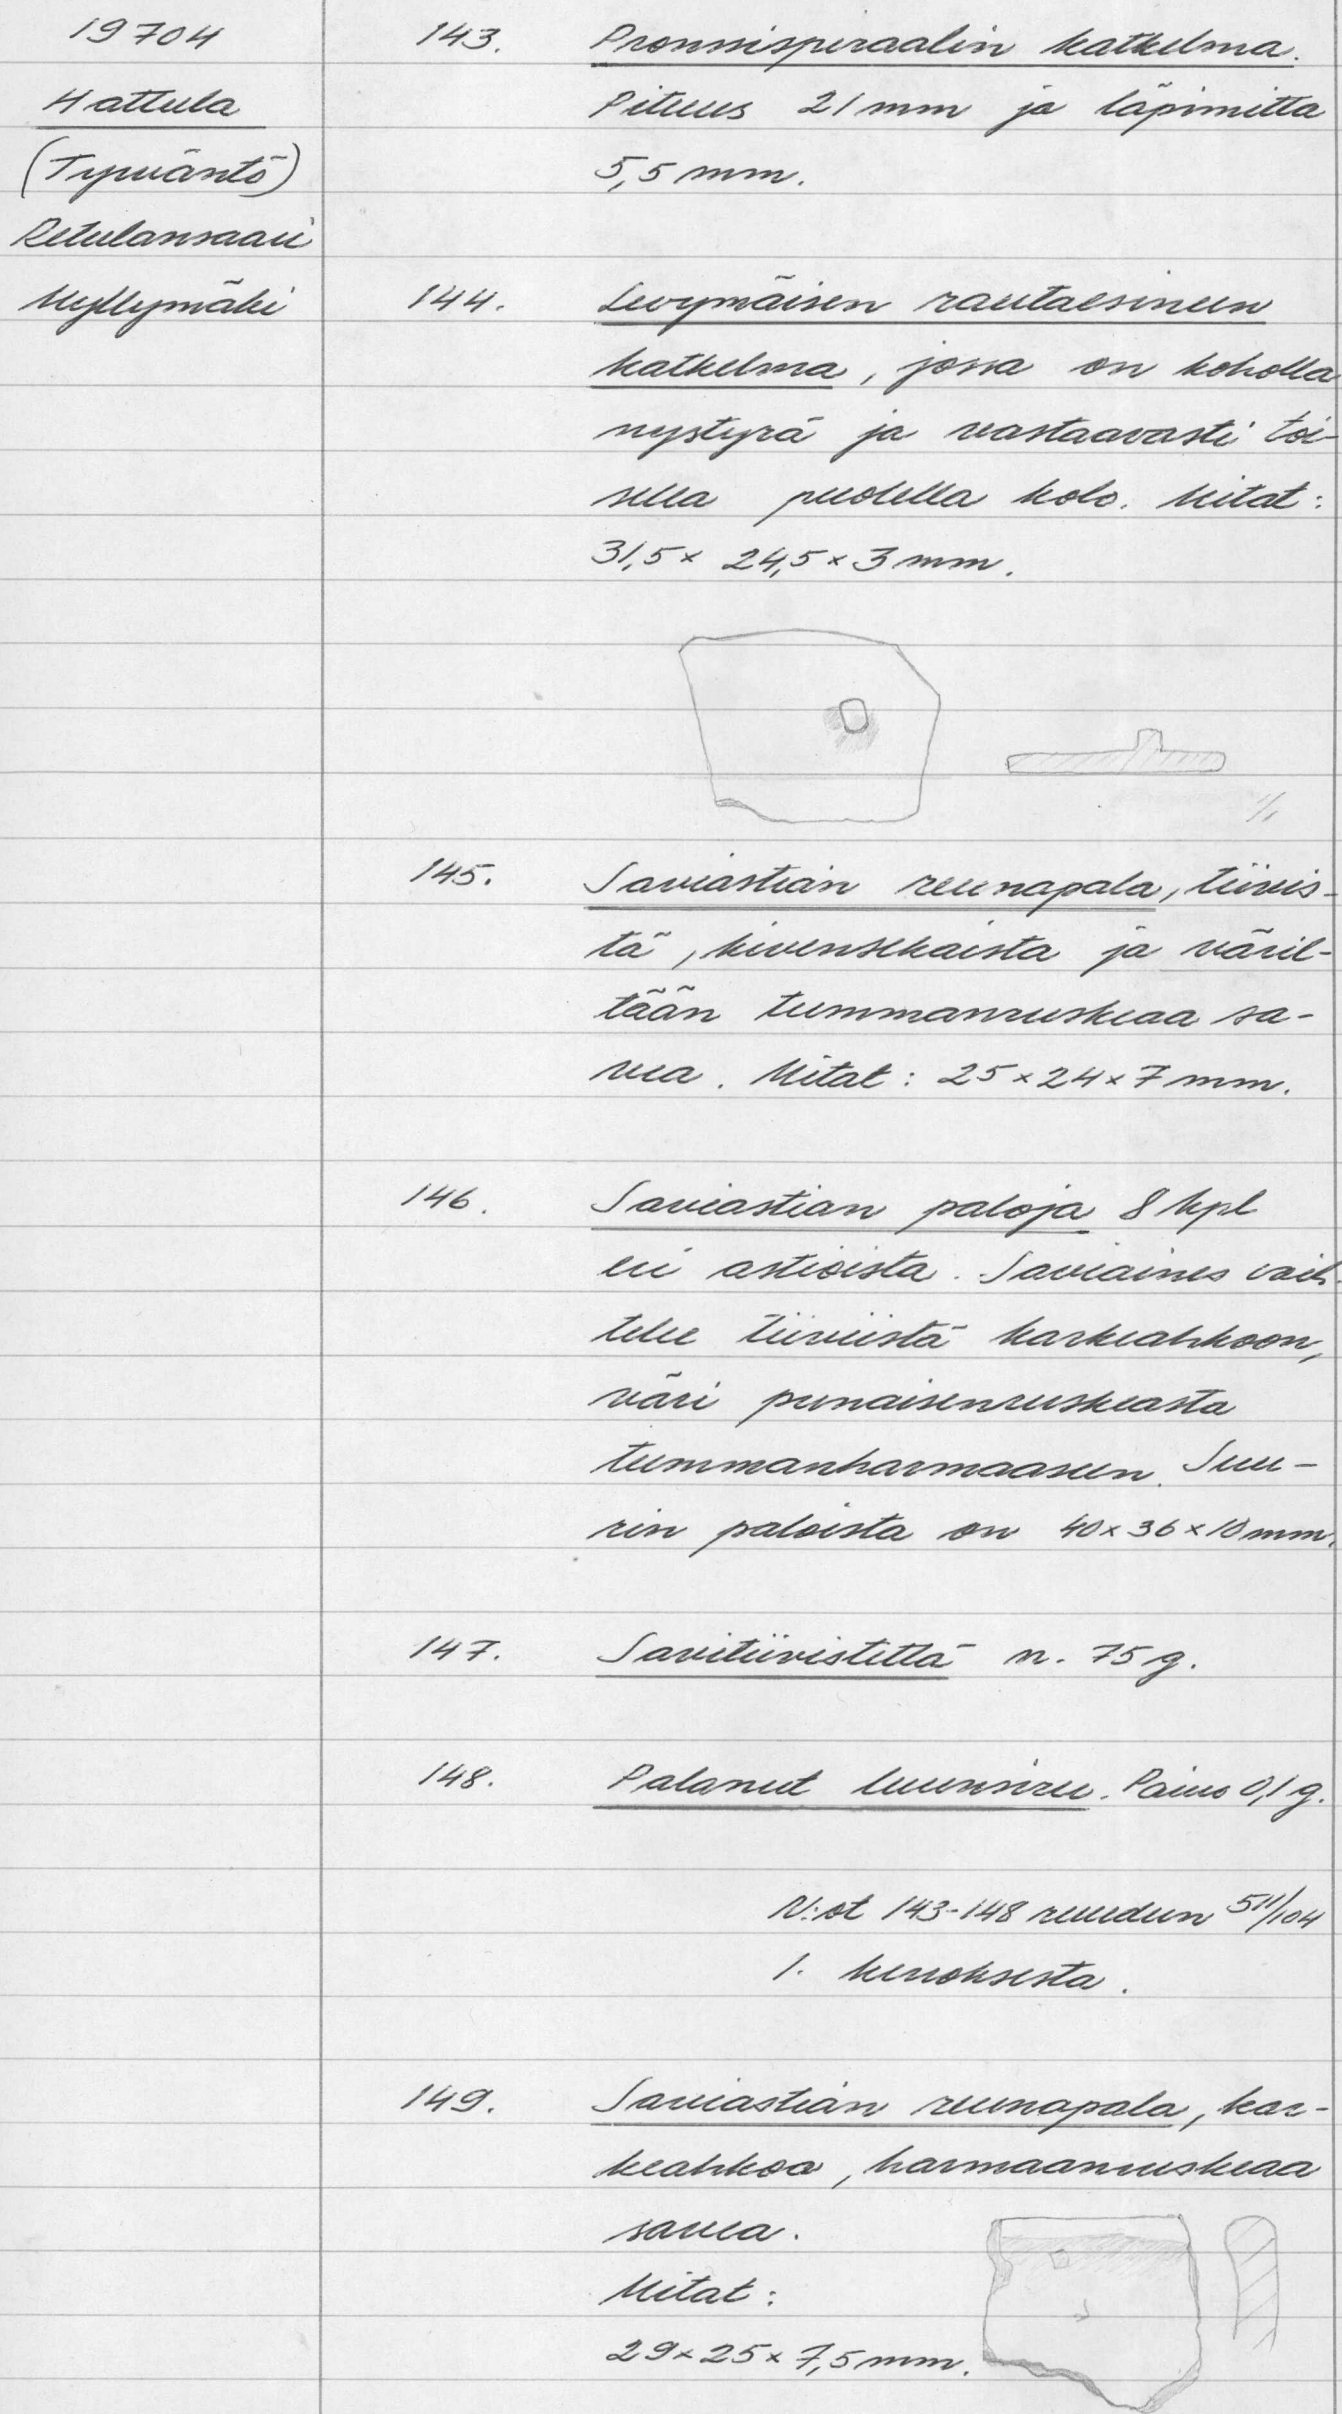 19704
Hattula
(Tyrväntö)
Retulansaari
Myllymäki
143. Pronssispiraalin katkelma.
Pituus 21 mm ja läpimitta
5,5 mm.
144. Levymäisen rautaesineen
katkelma, jossa on koholla
nystyrä ja vastaavasti toi-
sella puolella kolo. Mitat:
31,5 x 24,5 x 3 mm.
1/1
145. Saviastian reunapala, tiivis-
tä, kivensekaista ja väril-
tään tummanruskeaa sa-
vea. Mitat: 25 x 24 x 7 mm.
146. Saviastian paloja 8 kpl
eri astioista. Saviaines vaih-
telee tiiviistä karkeahkoon,
väri punaisenruskeasta
tummanharmaaseen. Suu-
rin paloista on 40 x 36 x 10 mm.
147. Savitiivistettä n. 75 g.
148. Palanut luunsiru. Paino 0,1 g.
N:ot 143-148 ruudun 511/104
1. kerroksesta.
149. Saviastian reunapala, kar-
keahkoa, harmaanruskeaa
savea.
Mitat:
29 x 25 x 7,5 mm.